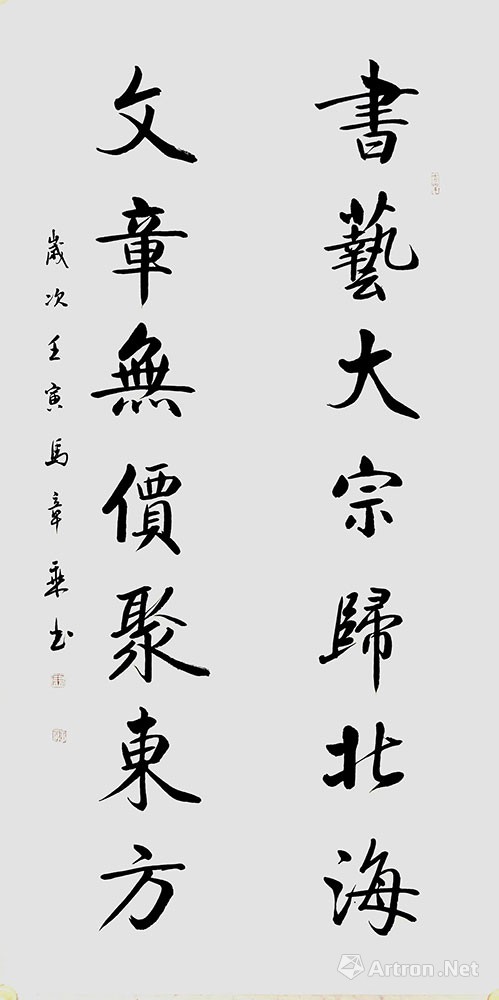 書藝大宗歸北海
文章無價聚東方
歲次壬寅馬章乘书
Artron.Net